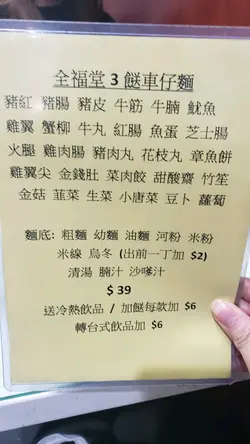 全福堂 3 餸車仔麵
豬紅 豬腸 豬皮 牛筋 牛腩 魷魚
雞翼 蟹柳 牛丸 紅腸 魚蛋 芝士腸
火腿 雞肉腸 豬肉丸 花枝丸 章魚餅
雞翼尖 金錢肚 菜肉餃 甜酸齋 竹笙
金菇 韮菜 生菜 小唐菜 豆卜 蘿蔔
麵底: 粗麵 幼麵 油麵 河粉 米粉
米線 烏冬 (出前一丁加 $2)
清湯 腩汁 沙嗲汁
$ 39
送冷熱飲品 / 加餸每款加 $6
轉台式飲品加 $6